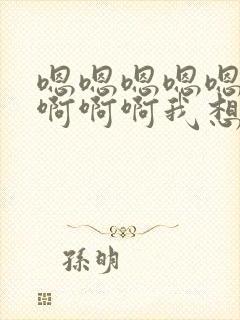 嗯嗯嗯嗯嗯
啊啊啊我想
孫明